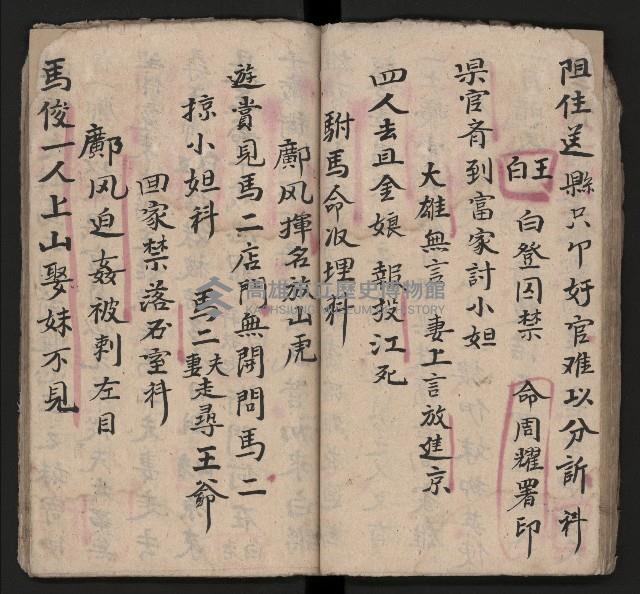 阻住送縣只卬奸官难以分訴科
王白 白登囚禁 命周耀署印
県官脊到富家討小妲
大雄無言 妻上言放進京
四人去且金娘 報投江死
駙馬命収埋科
鄺风揮名放山虎
遊賞見馬二店門無開問馬二
掠小妲科 馬二夫妻走尋王爺
回家禁落石室科
鄺风迫姦被刺左目
馬俊一人上山娶妹不見
高雄市立歷史博物館
KAOHSIUNG MUSEUM OF HISTORY